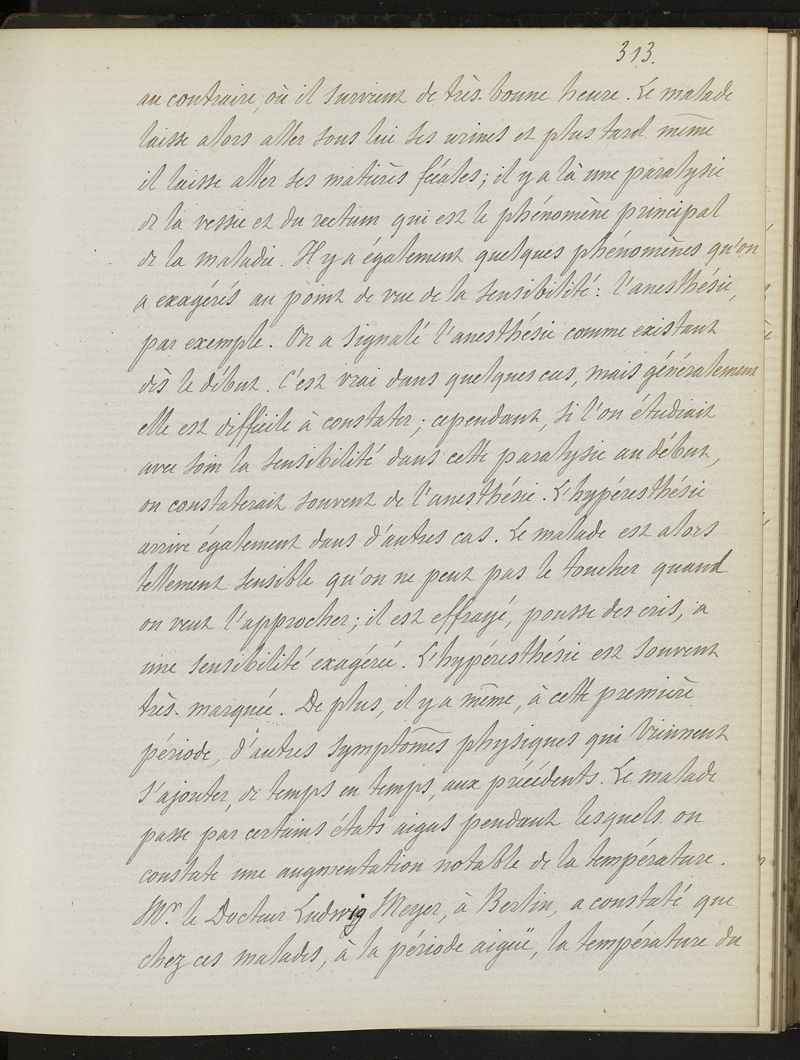 313.
au contraire, où il survient de très-bonne heure. Le malade
laisse alors aller sous lui ses urines et plus tard même
il laisse aller ses matières fécales; il y a là une paralysie
de la vessie et du rectum qui est le phénomène principal
de la maladie. Il y a également quelques phénomènes qu'on
a exagérés au point de vue de la sensibilité: l'anesthésie,
par exemple. On a signalé l'anesthésie comme existant
dès le début. C'est vrai dans quelques cas, mais généralement
elle est difficile à constater; cependant, si l'on étudiait
avec soin la sensibilité dans cette paralysie au début,
on constaterait souvent de l'anesthésie. L'hypéresthésie
arrive également dans d'autres cas. Le malade est alors
tellement sensible qu'on ne peut pas le toucher quand
on veut l'approcher; il est effrayé, pousse des cris, a
une sensibilité exagérée. L'hypéresthésie est souvent
très-marquée. De plus, il y a même, à cette première
période, d'autres symptômes physiques qui viennent
s'ajouter, de temps en temps, aux précédents. Le malade
passe par certains états aigus pendant lesquels on
constate une augmentation notable de la température.
Mr. le Docteur Ludwig Meyer, à Berlin, a constaté que
chez ces malades, à la période aiguë, la température du